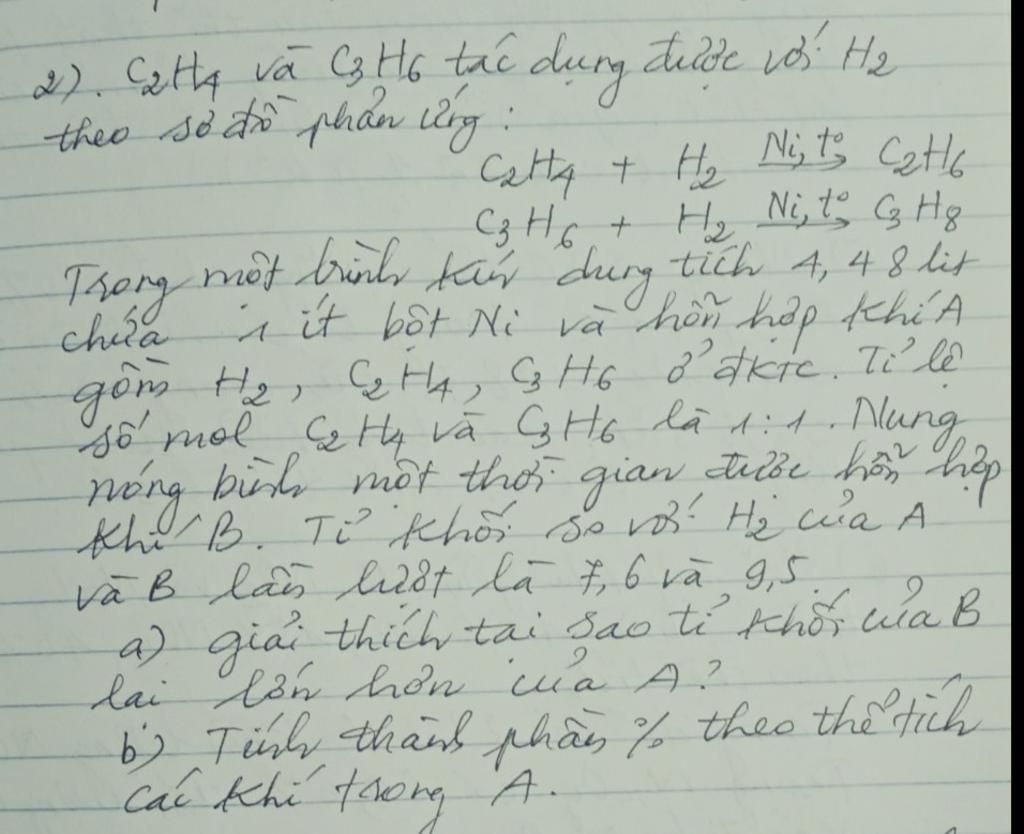 2). C2H4 và C3H6 tác dụng được với H2
theo sơ đồ phản ứng:
C2H4 + H2 Ni, t° → C2H6
C3H6 + H2 Ni, t° → C3H8
Trong một bình kín dung tích 4,48 lit
chứa 1 ít bột Ni và hỗn hợp khí A
gồm H2, C2H4, C3H6 ở đktc. Tỉ lệ
số mol C2H4 và C3H6 là 1:1. Nung
nóng bình một thời gian được hỗn hợp
khí B. Tỉ khối so với H2 của A
và B lần lượt là 7,6 và 9,5.
a) giải thích tại sao tỉ khối của B
lại lớn hơn của A?
b) Tính thành phần % theo thể tích
các khí trong A.